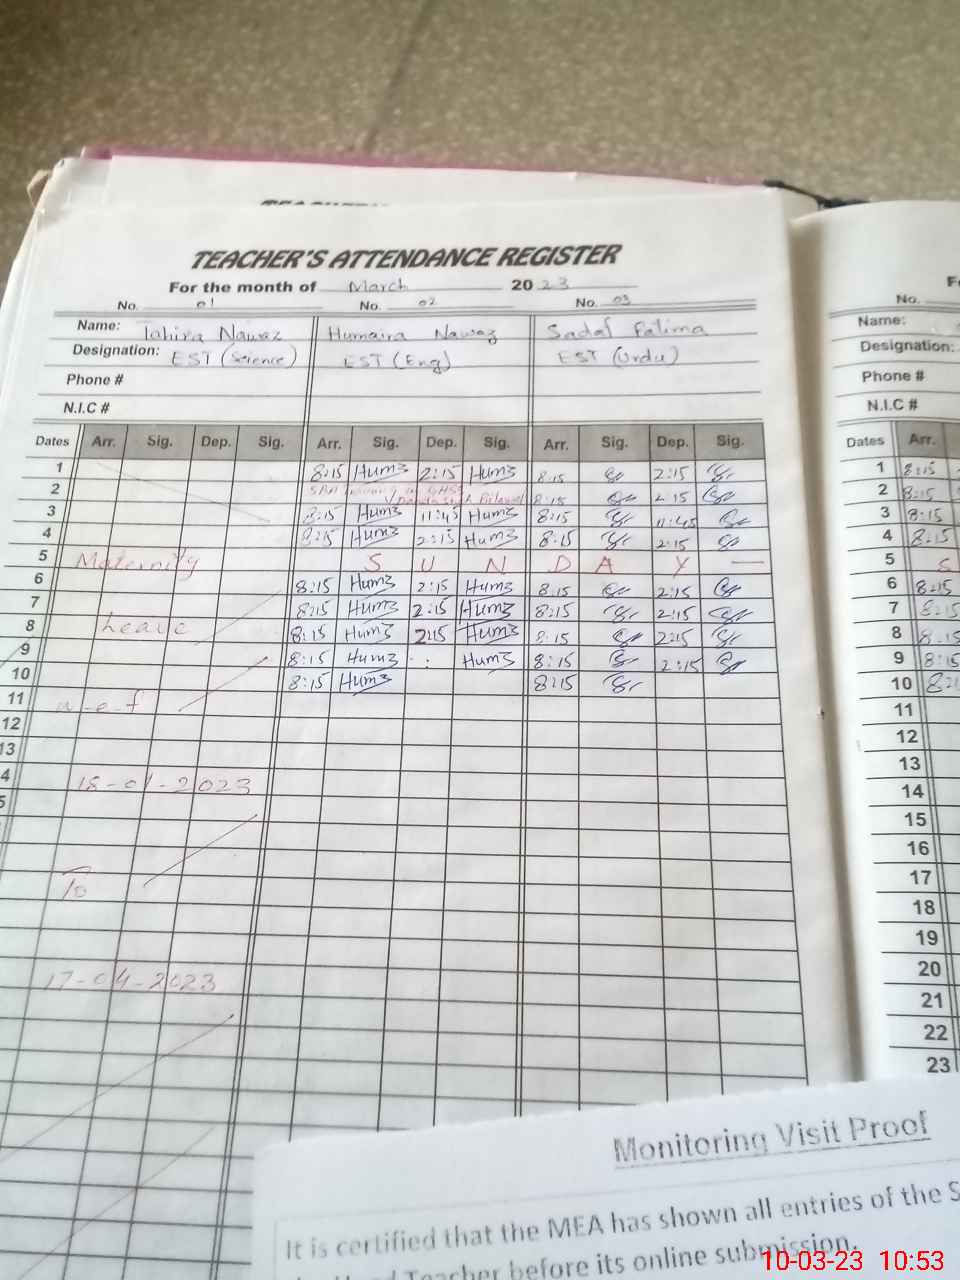 TEACHER'S ATTENDANCE REGISTER
For the month of March 2023
No. 01 No. 02 No. 03 No.
Name: Tahira Nawaz Humaira Nawaz Sadaf Fatima Name:
Designation: EST (Science) EST (Eng) EST (Urdu) Designation:
Phone # Phone #
N.I.C # N.I.C #
Dates Arr. Sig. Dep. Sig. Arr. Sig. Dep. Sig. Arr. Sig. Dep. Sig. Dates Arr.
1 8:15 Hum3 2:15 Hum3 8:15 2:15 1 8:15
2 8:15 2:15 2 8:15
3 8:15 Hum3 11:45 Hum3 8:15 11:45 3 8:15
4 8:15 Hum3 2:15 Hum3 8:15 2:15 4 8:15
5 Maternity S U N D A Y — 5 S
6 8:15 Hum3 2:15 Hum3 8:15 2:15 6 8:15
7 8:15 Hum3 2:15 Hum3 8:15 2:15 7 8:15
8 Leave 8:15 Hum3 2:15 Hum3 8:15 2:15 8 8:15
9 8:15 Hum3 Hum3 8:15 2:15 9 8:15
10 8:15 Hum3 8:15 10
11 w-e-f 11
12 12
13 13
4 18-01-2023 14
5 15
16
17
To
18
19
20
17-04-2023
21
22
23
Monitoring Visit Proof
It is certified that the MEA has shown all entries of the S
Head Teacher before its online submission.
10-03-23 10:53